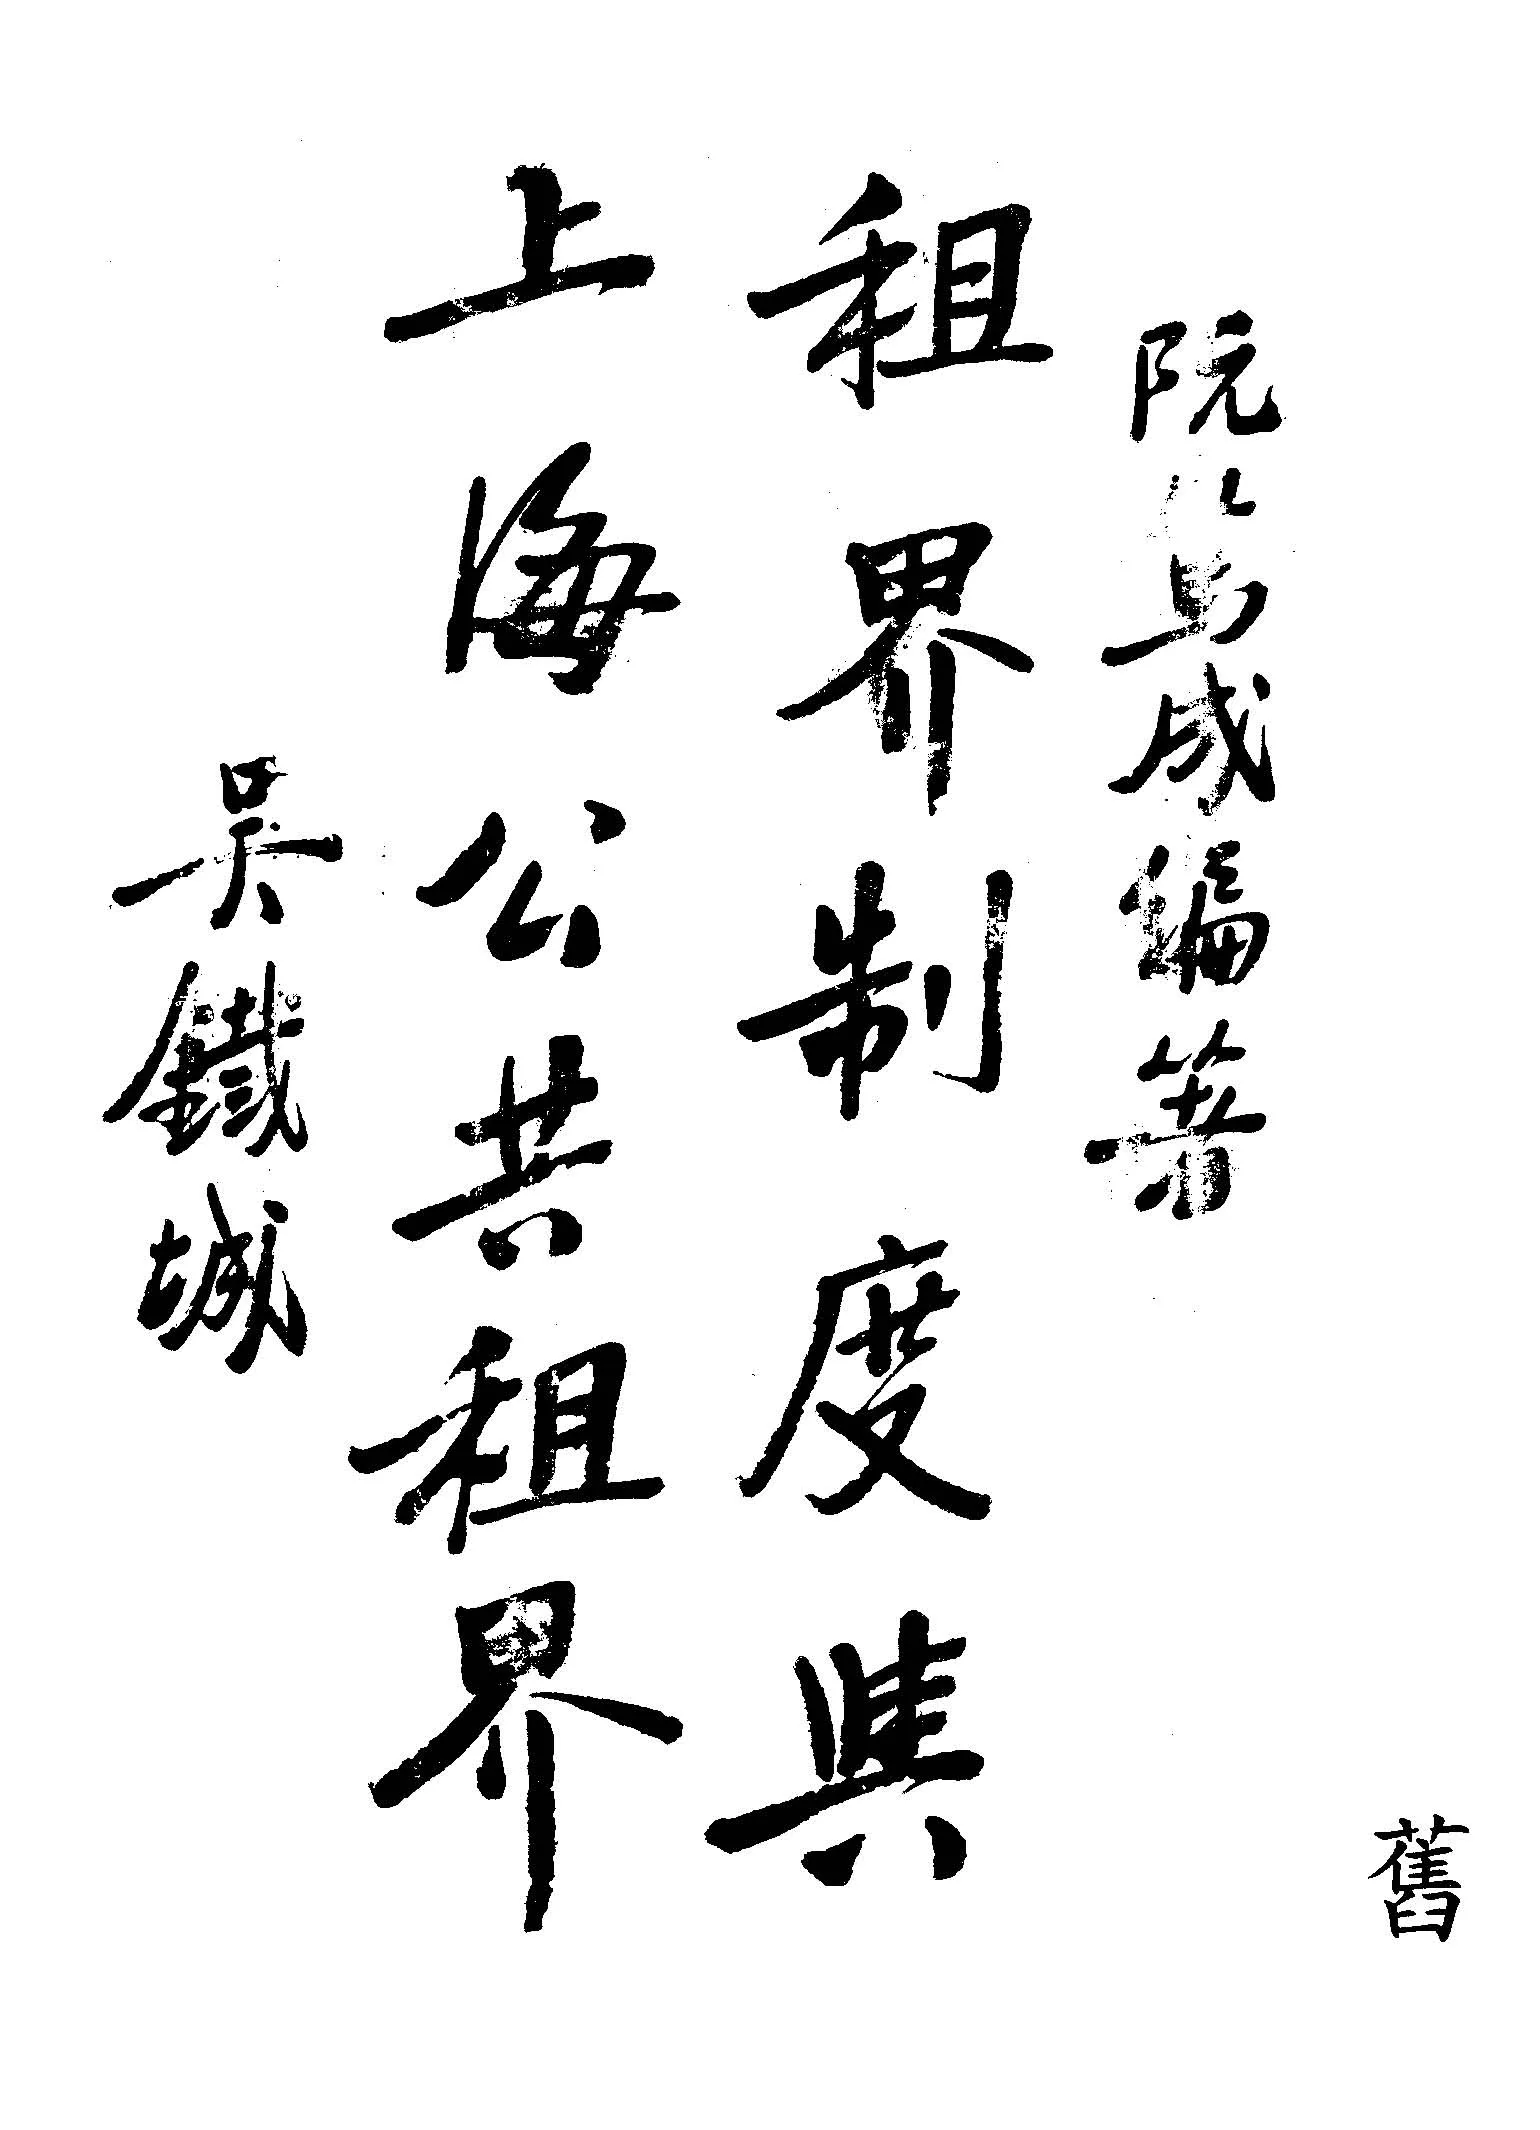 舊
阮篤成編著
租界制度與
上海公共租界
吳鐵城